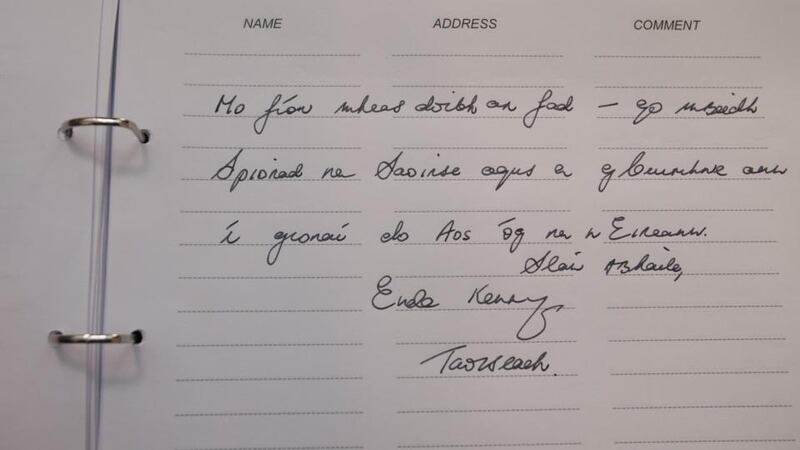 NAME ADDRESS COMMENT
Mo fíor mheas doibh an fad – go mbeidh
Spiorad na Saoirse agus a g
í gconaí do Aos óg na n Eireann.
Slán Abhaile,
Enda Kenny
Taoiseach.